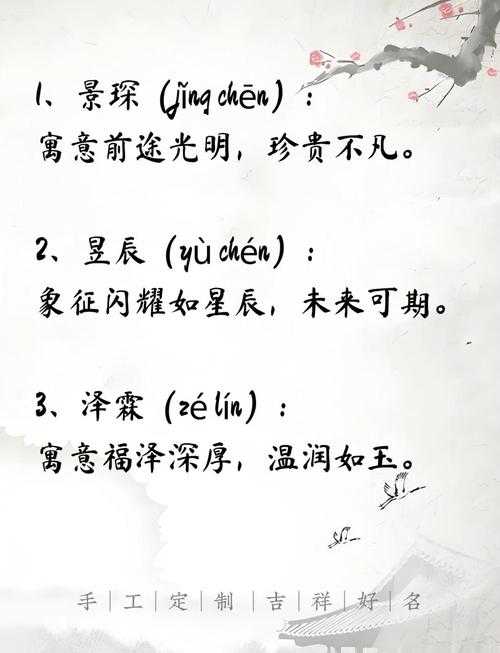 1、景琛（jǐng chēn）：
寓意前途光明，珍贵不凡。
2、昱辰（yù chén）：
象征闪耀如星辰，未来可期。
3、泽霖（zé lín）：
寓意福泽深厚，温润如玉。
手｜工｜定｜制｜吉｜祥｜好｜名